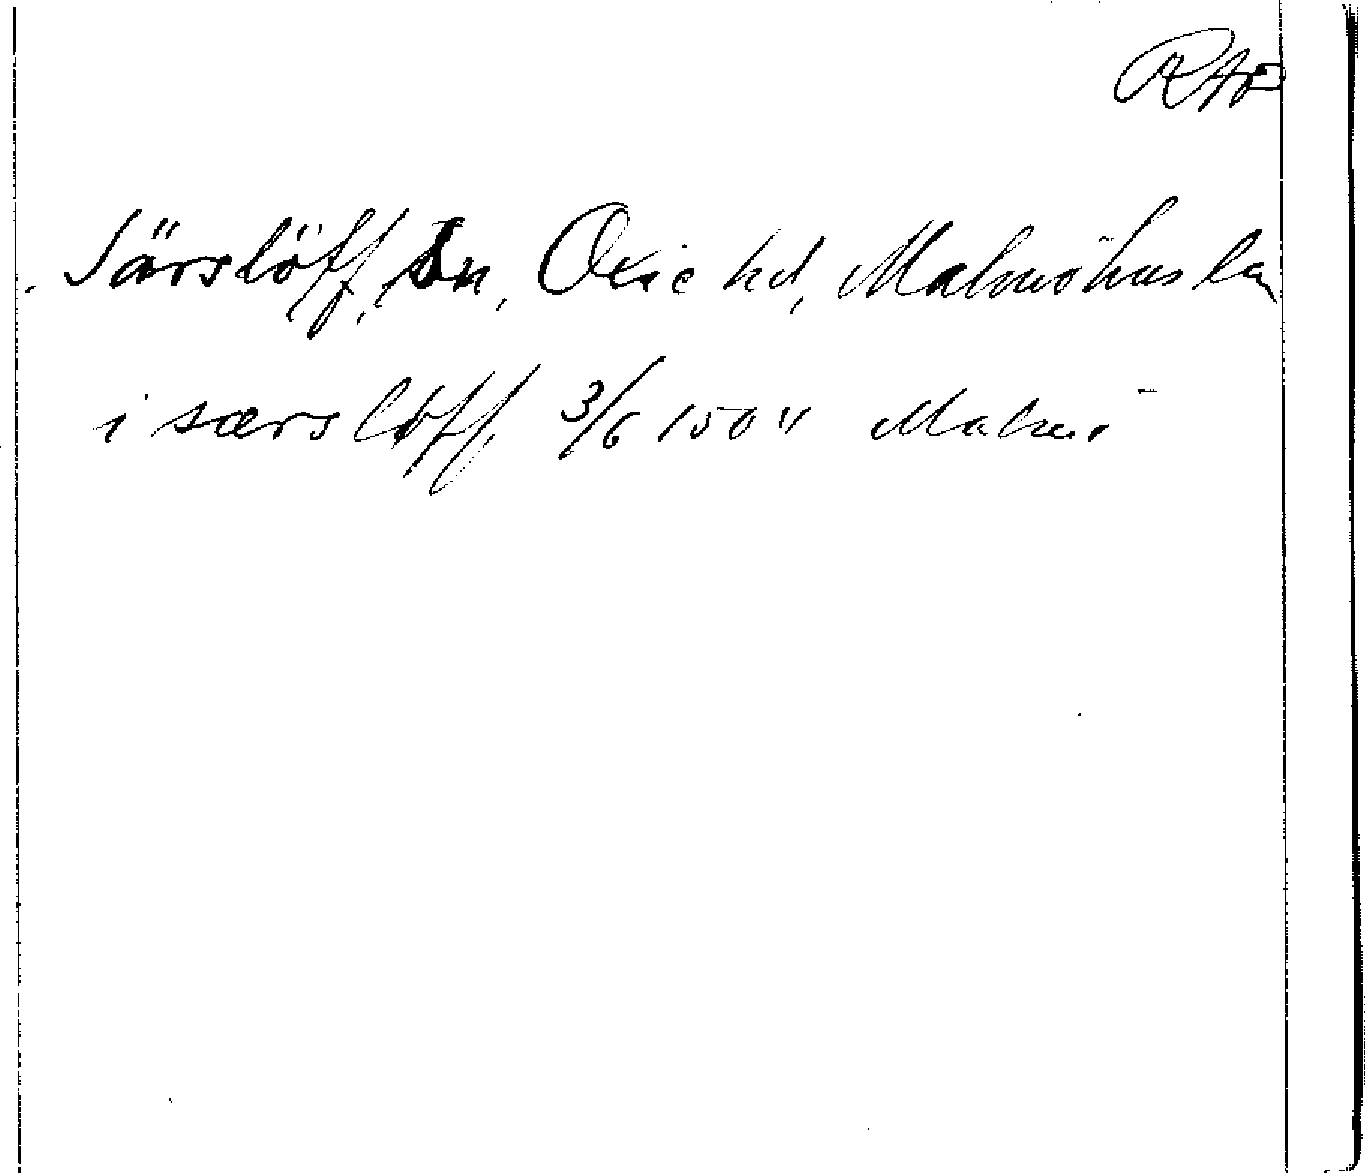 RAP
Särslöff, Sn, Oxie hd, Malmöhus län
i særslöff 3/6 1504 Malmö